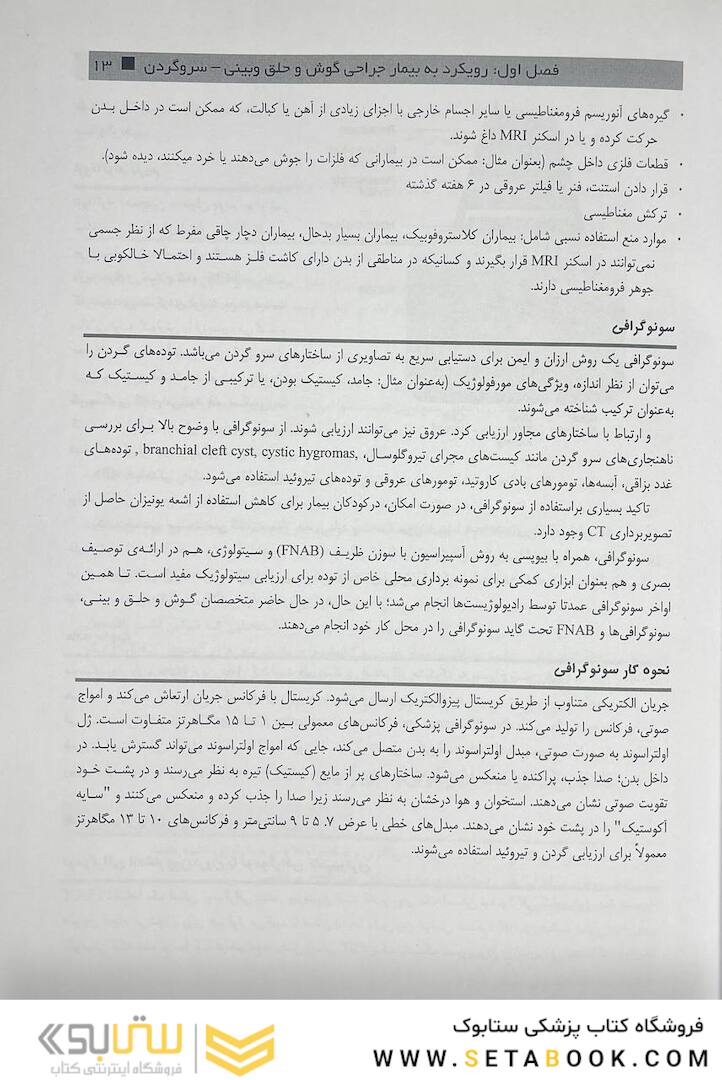 فصل اول: رویکرد به بیمار جراحی گوش و حلق وبینی – سروگردن ■ ۱۳
• گیره‌های آنوریسم فرومغناطیسی یا سایر اجسام خارجی با اجزای زیادی از آهن یا کبالت، که ممکن است در داخل بدن
حرکت کرده و یا در اسکنر MRI داغ شوند.
• قطعات فلزی داخل چشم (بعنوان مثال: ممکن است در بیمارانی که فلزات را جوش می‌دهند یا خرد میکنند، دیده شود).
• قرار دادن استنت، فنر یا فیلتر عروقی در ۶ هفته گذشته
• ترکش مغناطیسی
• موارد منع استفاده نسبی شامل: بیماران کلاستروفوبیک، بیماران بسیار بدحال، بیماران دچار چاقی مفرط که از نظر جسمی
نمی‌توانند در اسکنر MRI قرار بگیرند و کسانیکه در مناطقی از بدن دارای کاشت فلز هستند و احتمالا خالکوبی با
جوهر فرومغناطیسی دارند.
سونوگرافی
سونوگرافی یک روش ارزان و ایمن برای دستیابی سریع به تصاویری از ساختارهای سرو گردن می‌باشد. توده‌های گردن را
می‌توان از نظر اندازه، ویژگی‌های مورفولوژیک (به‌عنوان مثال: جامد، کیستیک بودن، یا ترکیبی از جامد و کیستیک که
به‌عنوان ترکیب شناخته می‌شوند.
و ارتباط با ساختارهای مجاور ارزیابی کرد. عروق نیز می‌توانند ارزیابی شوند. از سونوگرافی با وضوح بالا برای بررسی
ناهنجاری‌های سرو گردن مانند کیست‌های مجرای تیروگلوسال، branchial cleft cyst, cystic hygromas, توده‌های
غدد بزاقی، آبسه‌ها، تومورهای بادی کاروتید، تومورهای عروقی و توده‌های تیروئید استفاده می‌شود.
تاکید بسیاری براستفاده از سونوگرافی، در صورت امکان، درکودکان بیمار برای کاهش استفاده از اشعه یونیزان حاصل از
تصویربرداری CT وجود دارد.
سونوگرافی، همراه با بیوپسی به روش آسپیراسیون با سوزن ظریف (FNAB) و سیتولوژی، هم در ارائه‌ی توصیف
بصری و هم بعنوان ابزاری کمکی برای نمونه برداری محلی خاص از توده برای ارزیابی سیتولوژیک مفید است. تا همین
اواخر سونوگرافی عمدتا توسط رادیولوژیست‌ها انجام می‌شد؛ با این حال، در حال حاضر متخصصان گوش و حلق و بینی،
سونوگرافی‌ها و FNAB تحت گاید سونوگرافی را در محل کار خود انجام می‌دهند.
نحوه کار سونوگرافی
جریان الکتریکی متناوب از طریق کریستال پیزوالکتریک ارسال می‌شود. کریستال با فرکانس جریان ارتعاش می‌کند و امواج
صوتی، فرکانس را تولید می‌کند. در سونوگرافی پزشکی، فرکانس‌های معمولی بین ۱ تا ۱۵ مگاهرتز متفاوت است. ژل
اولتراسوند به صورت صوتی، مبدل اولتراسوند را به بدن متصل می‌کند، جایی که امواج اولتراسوند می‌تواند گسترش یابد. در
داخل بدن؛ صدا جذب، پراکنده یا منعکس می‌شود. ساختارهای پر از مایع (کیستیک) تیره به نظر می‌رسند و در پشت خود
تقویت صوتی نشان می‌دهند. استخوان و هوا درخشان به نظر می‌رسند زیرا صدا را جذب کرده و منعکس می‌کنند و "سایه
آکوستیک" را در پشت خود نشان می‌دهند. مبدل‌های خطی با عرض ۷. ۵ تا ۹ سانتی‌متر و فرکانس‌های ۱۰ تا ۱۳ مگاهرتز
معمولاً برای ارزیابی گردن و تیروئید استفاده می‌شوند.
فروشگاه کتاب پزشکی ستابوک
WWW.SETABOOK.COM
ستابوک
فروشگاه اینترنتی کتاب